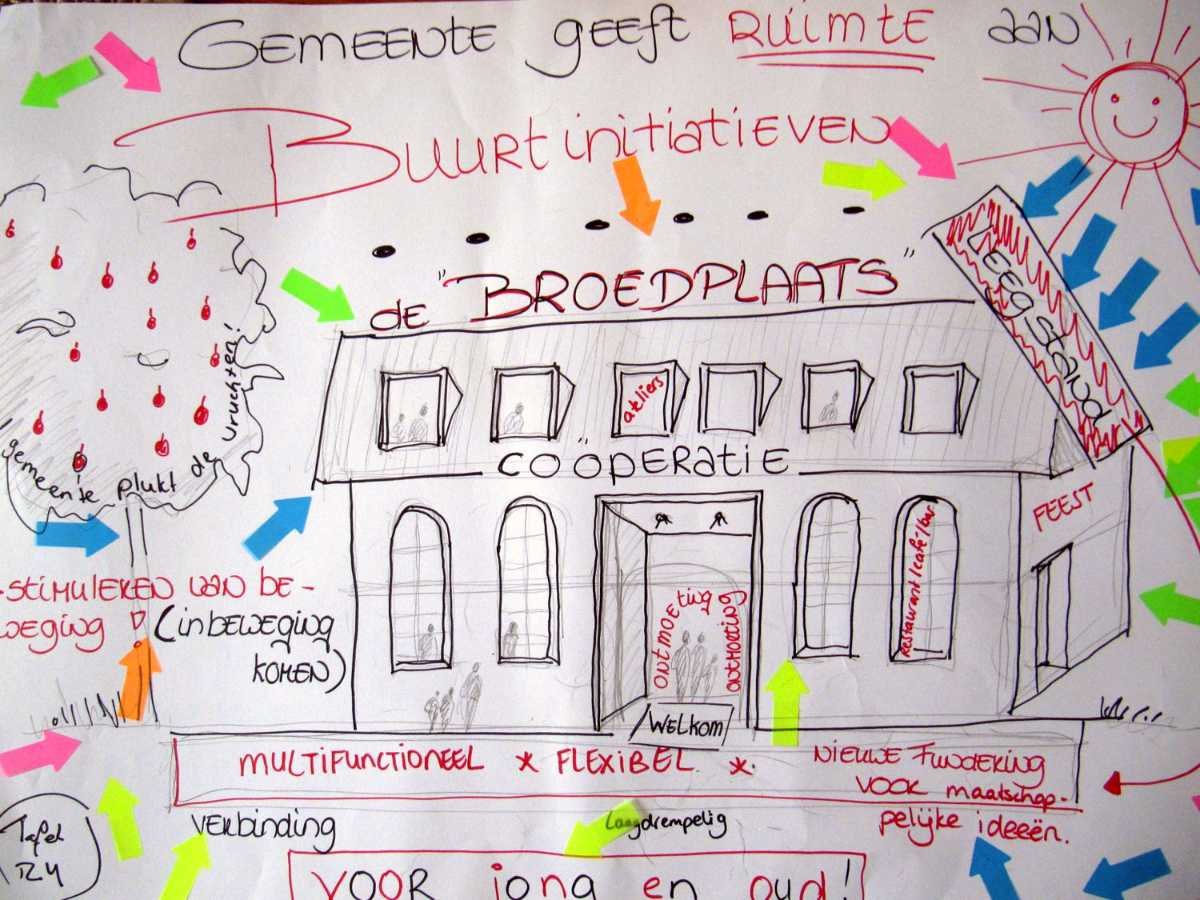 GEMEENTE geeft RUIMTE aan
BUURTinitiatieven
de "BROEDPLAATS"
Leegstand
ateliers
COÖPERATIE
gemeente plukt de vruchten!
FEEST
Restaurant/café/bar
ONTMOETING
ONTMOETING
WELKOM
-STIMULEREN VAN BE-
WEGING! (inBEWEGING
KOMEN)
MULTIFUNCTIONEEL * FLEXIBEL *
NIEUWE FUNDERING
VOOR maatschap-
pelijke ideeën.
VERbinding
Laagdrempelig
Tafel
R4
VOOR jong en oud!